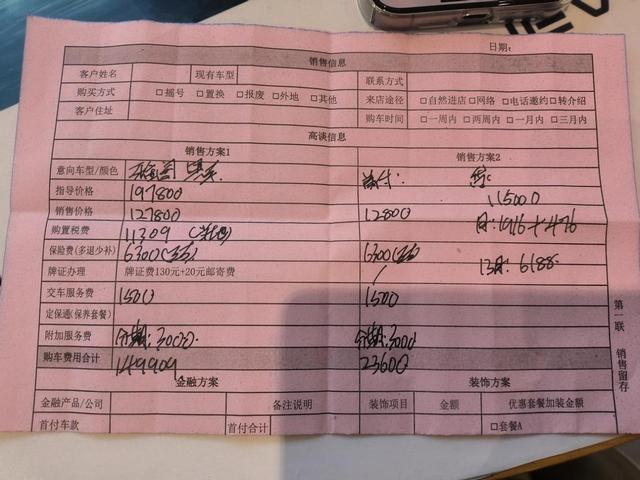 日期:
销售信息
客户姓名 现有车型 联系方式
购买方式 □摇号 □置换 □报废 □外地 □其他 来店途径 □自然进店□网络 □电话邀约□转介绍
客户住址 购车时间 □一周内 □两周内 □一月内 □三月内
高谈信息
销售方案1 销售方案2
意向车型/颜色 首付: 贷:
指导价格 197800 115000
销售价格 127800 12800 月:1916+476
购置税费 11309
保险费(多退少补) 6300 6300 13月: 6188
牌证办理 牌证费130元+20元邮寄费 /
交车服务费 1500 1500
定保通(保养套餐)
附加服务费 分期:3000 分期:3000
购车费用合计 149909 23600
金融方案 装饰方案
金融产品/公司 备注说明 装饰项目 金额 优惠套餐加装金额
首付车款 首付合计 □套餐A
第一联 销售留存